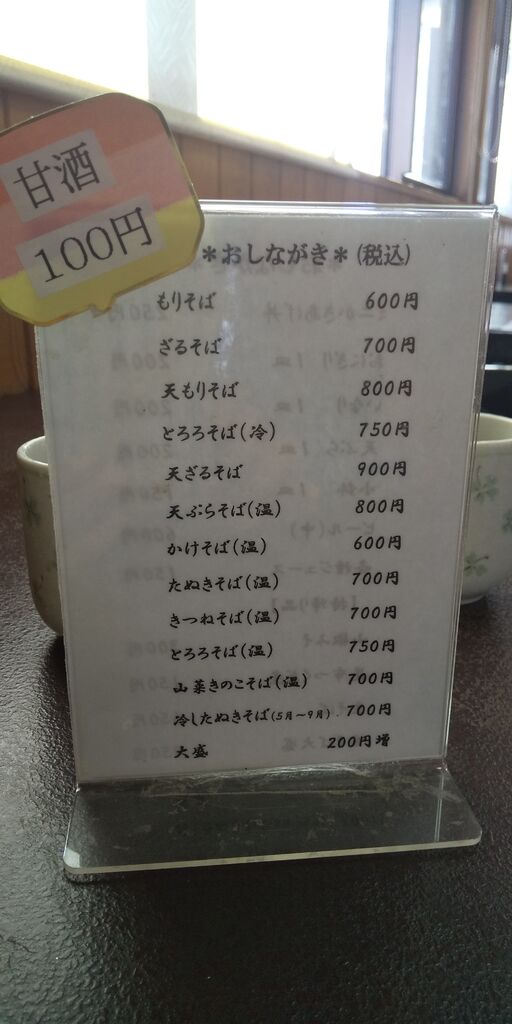 甘酒
100円
＊おしながき＊(税込)
もりそば 600円
ざるそば 700円
天もりそば 800円
とろろそば(冷) 750円
天ざるそば 900円
天ぷらそば(温) 800円
かけそば(温) 600円
たぬきそば(温) 700円
きつねそば(温) 700円
とろろそば(温) 750円
山菜きのこそば(温) 700円
冷したぬきそば(5月～9月) 700円
大盛 200円増